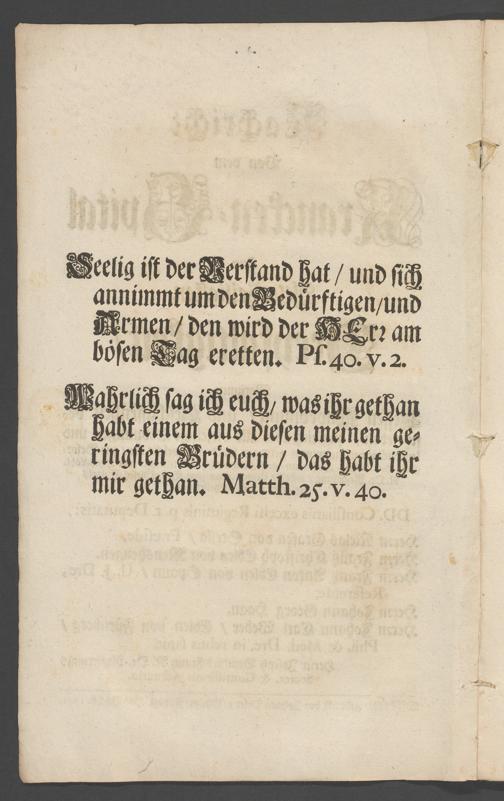 Seelig ist der Verstand hat / und sich
annimmt um den Bedürftigen / und
Armen / den wird der HErr am
bösen Tag eretten. Ps. 40. v. 2.
Wahrlich sag ich euch / was ihr gethan
habt einem aus diesen meinen ge-
ringsten Brüdern / das habt ihr
mir gethan. Matth. 25. v. 40.